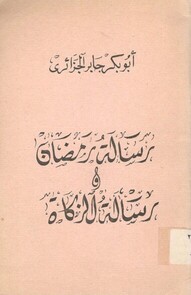 أبو بكر جابر الجزائري
رسالة رمضان
و
رسالة الزكاة